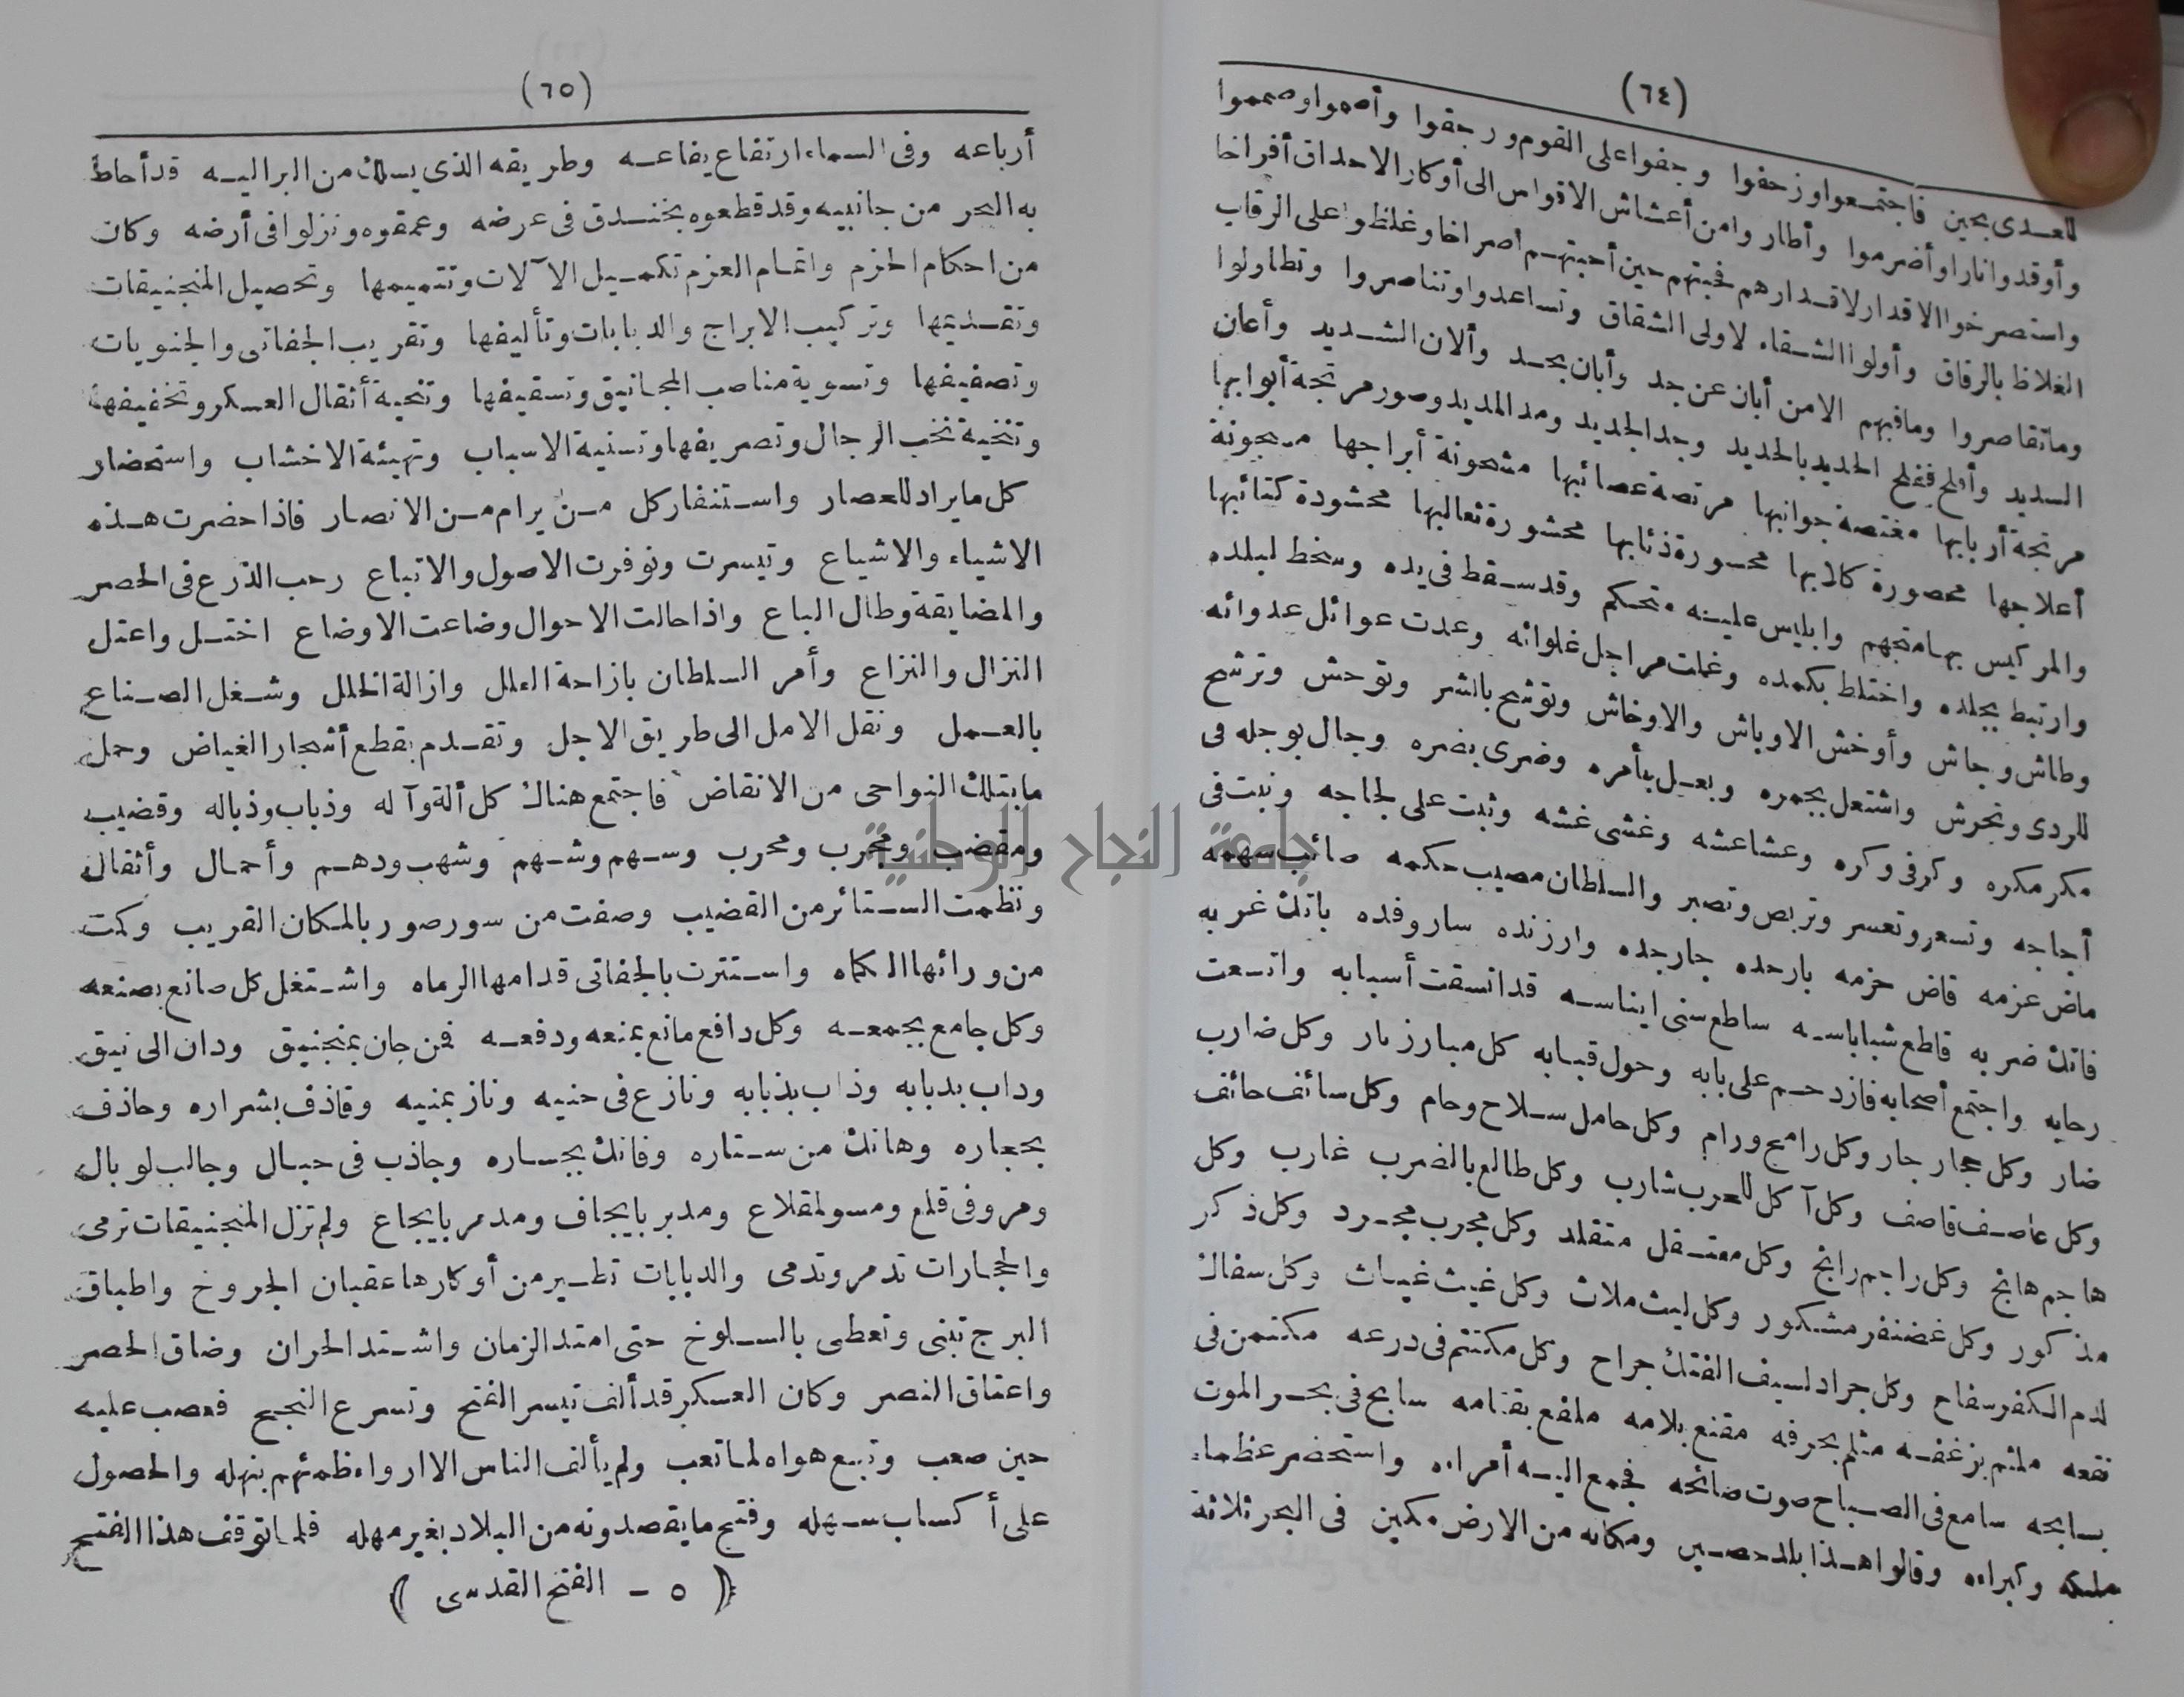 (٦٤)
للعدى بحين فاجتمعوا وزحفوا وجفوا على القوم ورجفوا وأصموا وصمموا
وأوقدوا نارا وأضرموا وأطاروا من أعشاش الاقواس الى أوكار الاحداق أفراخا
واستصرخوا الاقدار لاقدارهم فجبتهم حين أجبتهم اصراخا وغلظوا على الرقاب
الغلاظ بالرقاق وأولوا الشقاء لاولى الشقاق وتساعدوا وتناصروا وتطاولوا
وما تقاصروا وما فيهم الا من أبان عن جد وأبان بحد وألان الشديد وأعان
السديد وأفلح ففلح الحديد بالحديد وجد الجديد ومد المديد وصور مرتجة أبوابها
مرتجة أربابها مغتصة جوانبها مرتصة عصائبها مشحونة أبراجها مسجونة
أعلاجها محصورة كلابها محسورة ذئابها محشورة ثعالبها محشودة كتائبها
والمركيس بها متجهم وابليس عليه متحكم وقد سقط فى يده وسخط لبلده
وارتبط بجلده واختلط بكمده وغلت مراجل غلوائه وعدت عوائل عدوائه
وطاش وجاش وأوخش الاوباش والاوخاش وتوشح بالشر وتوحش وترشح
للردى وتحرش واشتعل بجمره وبعل بأمره وضرى بضره وجال بوجله فى
مكر مكره وكر فى وكره وعشا عشه وغشى غشه وثبت على لجاجه ونبت فى
أجاجه وتسعر وتعسر وتربص وتصبر والسلطان مصيب حكمه صائب سهمه
ماض عزمه قاض حزمه بارحده جارجده وارزنده ساروفده باتك غربه
فاتك ضربه قاطع شباباسه ساطع سنى ايناسه قد اتسقت أسبابه واتسعت
رحابه واجتمع أصحابه فازدحم على بابه وحول قبابه كل مبارز بار وكل ضارب
ضار وكل جار جار وكل رامح ورام وكل حامل سلاح وحام وكل سائف حائف
وكل عاصف قاصف وكل آكل للحرب شارب وكل طالع بالضرب غارب وكل
هاجم هائج وكل راجم رائج وكل معتقل متقلد وكل مجرب مجرد وكل ذكر
مذكور وكل غضنفر مشكور وكل ليث ملاث وكل غيث غياث وكل سفاك
لدم الكفر سفاح وكل جراد لسيف الفتك جراح وكل مكتتم فى درعه مكتمن فى
نقعه ملثم بزغفه مثلم بحرفه مقنع بلامه ملفع بقتامه سابح فى بحر الموت
بسابحه سامع فى الصباح صوت صائحه فجمع اليه أمراءه واستحضر عظماء
ملكه وكبراءه وقالوا هذا بلد حصين ومكانه من الارض مكين فى البحر ثلاثة
(٦٥)
أرباعه وفى السماء ارتفاع يفاعه وطريقه الذى يسلك من البر اليه قد أحاط
به البحر من جانبيه وقد قطعوه بخندق فى عرضه وعمقوه ونزلوا فى أرضه وكان
من احكام الحزم واتمام العزم تكميل الآلات وتتميمها وتحصيل المنجنيقات
وتقديمها وتركيب الابراج والدبابات وتأليفها وتقريب الجفاتى والجنويات
وتصفيفها وتسوية مناصب المجانيق وتسقيفها وتنحية أثقال العسكر وتخفيفها
وتنخية نخب الرجال وتصريفها وتسنية الاسباب وتهيئة الاخشاب واستحضار
كل ما يراد للحصار واستنفار كل من يرام من الانصار فاذا حضرت هذه
الاشياء والاشياع وتيسرت وتوفرت الاصول والاتباع رحب الذرع فى الحصر
والمضايقة وطال الباع واذا حالت الاحوال وضاعت الاوضاع اختل واعتل
النزال والنزاع وأمر السلطان بازاحة العلل وازالة الخلل وشغل الصناع
بالعمل ونقل الامل الى طريق الاجل وتقدم بقطع أشجار الغياض وحمل
ما بتلك النواحى من الانقاض فاجتمع هناك كل ألة وآله وذباب وذباله وقضيب
ومقضب ومحرب ومحرب وسهم وشهم وشهب ودهم وأحمال وأثقال
ونظمت الستائر من القضيب وصفت من سور صور بالمكان القريب وكمت
من ورائها الكماه واستترت بالجفاتى قدامها الرماه واشتغل كل صانع بصنعه
وكل جامع بجمعه وكل دافع مانع بمنعه ودفعه فمن جان بمنجنيق ودان الى نيق
وداب بدبابه وذاب بذبابه ونازع فى حنيه وناز بمنيه وقاذف بشراره وحاذف
بحجاره وهاتك من ستاره وفاتك بجساره وجاذب فى حبال وجالب لوبال
ومروفى قلع ومسو لمقلاع ومدبر بايجاف ومدمر بايجاع ولم تزل المنجنيقات ترمى
والحجارات تدمر وتدمى والدبابات تطير من أوكارها عقبان الجروخ واطباق
البرج تبنى وتعطى بالسلوخ حتى امتد الزمان واشتد الحران وضاق الحصر
واعتاق النصر وكان العسكر قد ألف تيسر الفتح وتسرع النجح فصعب عليه
حين صعب وتبع هواه لما تعب ولم يألف الناس الا ارواء ظمئهم بنهله والحصول
على أكساب سهله وفتح ما يقصدونه من البلاد بغير مهله فلما توقف هذا الفتح
(٥ - الفتح القدسى)
جامعة النجاح الوطنية